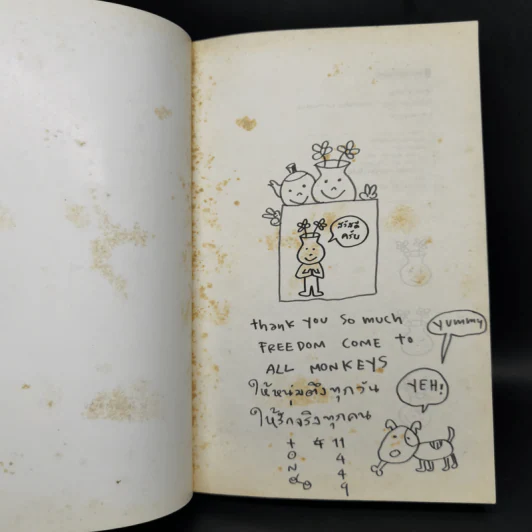 สวัสดี
ครับ
thank you so much
FREEDOM COME to
ALL MONKEYS
ให้หนุ่มตึงทุกวัน
ให้รักจริงทุกคน
yummy
YEH!